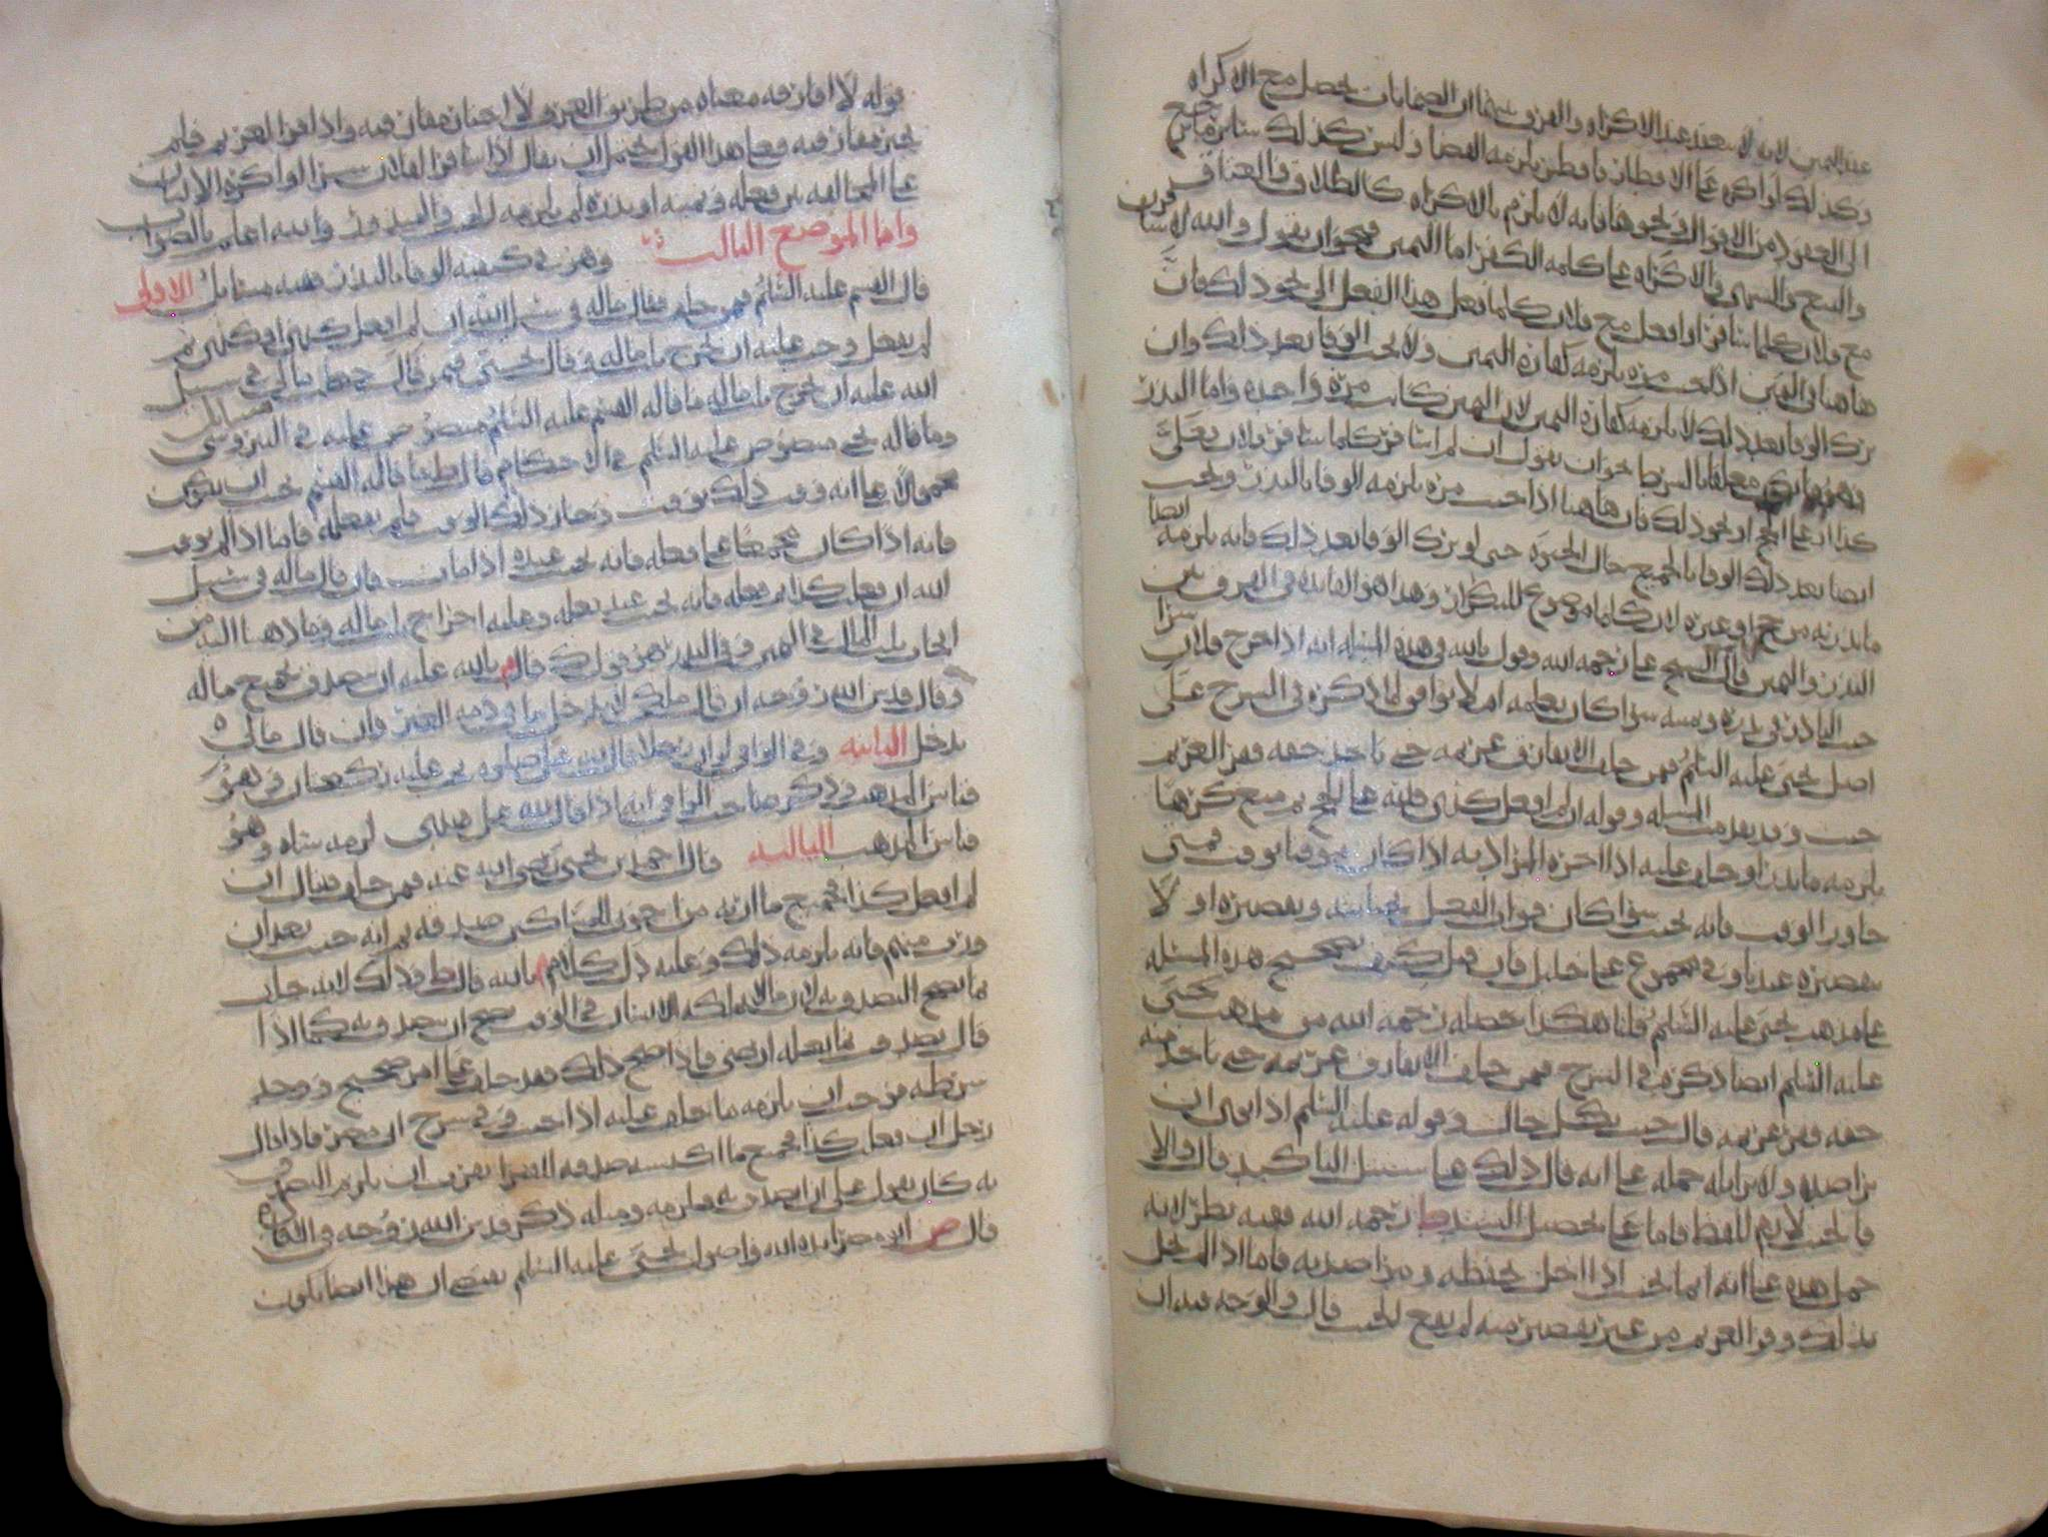 عقد اليمين لانه لا ينعقد عند الاكراه والفرق بينهما ان الضمانات تحصل مع الاكراه
وكذلك لو اكره على الافطار فافطر يلزمه القضا وليس كذلك سائر ما يرجع
الى العقود من الاقوال ونحوها فانه لا يلزم بالاكراه كالطلاق والعتاق
والبيع والشرى والاكراه على كلمة الكفر اما اليمين فنحو ان يقول والله لا سافرن
مع فلان كلما سافر او افعل مع فلان كلما فعل هذا الفعل الى نحو ذلك فان
هاهنا في اليمين اذا حنث مرة يلزمه كفارة اليمين ولا يجب الوفا بعد ذلك وان
ترك الوفا بعد ذلك لا يلزمه كفارة اليمين لان اليمين كانت مرة واحدة واما النذر
فهو ما يكون معلقا بالشرط نحو ان يقول ان لم اسافر كلما سافر فلان فعلي
كذا او على الحج او نحو ذلك فان هاهنا اذا حنث مرة يلزمه الوفا بالنذر ويجب
ايضا بعد ذلك الوفا بالجميع حال الحيوة حتى لو ترك الوفا بعد ذلك فانه يلزمه ايضا
ما نذر به من حج او غيره لان كلما موضوع للتكرار وهذا هو الفائدة في الفرق بين
النذر واليمين قال الشيخ علي رحمه الله وقول بالله في هذه المسئلة انه اذا خرج فلان سرا
حنث الناذر في نذره ويمينه سوا كان يعلمه ام لا يوافق لما ذكره في الشرح على
اصل يحيى عليه السلم فيمن حلف الا يفارق غريمه حتى ياخذ حقه ففر الغريم
حنث وقد تقدمت المسئلة وقوله ان لم افعل كذي فلله علي الحج ثم منع كرها
يلزمه ما نذر او حلف عليه اذا اخره المراد به اذا كان موقتا بوقت فمتى
جاوز الوقت فانه يحنث سوا كان فوات الفعل بجنايته وتقصيره او لا
تقصيره عند باوفي مجموع علي خليل فان قيل كيف تصحيح هذه المسئلة
على مذهب يحيى عليه السلم قلنا هكذا حصله رحمه الله من مذهب يحيى
عليه السلم ايضا ذكره في الشرح فيمن حلف الا يفارق غريمه حتى ياخذ منه
حقه ففر غريمه قال حنث بكل حال وقوله عليه السلم اذا انجى ان
يراصده ولا يزايله حمله على انه قال ذلك على سبيل التاكيد قال والا
فالحنث لازم للفظ فاما على تحصيل السيد ط رحمه الله ففيه نظر لانه
حمل هذه على انه انما يحنث اذا اخل بحفظه ومراصدته فاما اذا لم يخل
بذلك وفر الغريم من غير تقصير منه لم يقع الحنث قال والوجه فيه ان
قوله لا افارقه معناه من طريق العرف لا اختار مفارقته واذا فر الغريم فلم
يختر مفارقته فعلى هذا القول يحتمل ان يقال اذا سافر الفلان سرا او اكره الانسان
على المخالفة من فعله في يمينه او نذره لم يلزمه للعرف المذكور والله اعلم بالصواب
واما الموضع الثالث وهو في كيفية الوفا بالنذر ففيه مسائل الاولى
قال القسم عليه السلم فيمن حلف فقال ماله في سبيل الله ان لم افعل كذي او كذي ثم
لم يفعل وجب عليه ان يخرج ثلث ماله وقال يحيى فيمن قال جعلت مالي في سبيل
الله عليه ان يخرج ثلث ماله ما قاله القسم عليه السلم منصوص عليه في النيروسي مسائل
وما قاله يحيى منصوص عليه السلم في الاحكام قال ط ما قاله القسم يجب ان يكون
محمولا على انه وقت ذلك بوقت وجاز ذلك الوقت فلم يفعله فاما اذا لم يوقت
فانه اذا كان مجمعا على فعله فانه يحنث عنده اذا مات فان قال ماله في سبيل
الله ان فعل كذا ثم فعله فانه يحنث عند فعله وعليه اخراج ثلث ماله وما ذهبنا اليه من
ايجاب ثلث المال في اليمين وفي النذر هو قول ك قال م بالله عليه ان يتصدق بجميع ماله
وقال قدس الله روحه ان قال ملكي لا يدخل ما في ذمة الغير وان قال مالي
يدخل الثانية وفي الوافي لو ان رجلا قال لله علي صلوة يجب عليه ركعتان وهو
قياس المذهب وذكر صاحب الوافي انه اذا قال لله علي هدي لزمه شاة وهو
قياس المذهب الثالثة قال احمد بن يحيى رضي الله عنه فيمن حلف فقال ان
لم افعل كذا فجميع ما ارثه من اخوتي المساكين صدقة ثم انه حنث بعد ان
ورث منهم فانه يلزمه ذلك وعليه دل كلام م بالله قال ط وذلك لانه حلف
بما يصح التصدق به لان مالا يملكه الانسان في الوقت يصح ان يتصدق به كما اذا
قال تصدق بما يغله ارضي فاذا صح ذلك فقد حلف على امر صحيح ووجد
شرطه فوجب ان يلزمه ما حلف عليه اذا حنث وفي شرح ابي مضر فاذا قال
رجل ان فعل كذا فجميع ما اكتسبه صدقة للفقرا يقرب ان يلزم التصدق
به كان يقول علي ان اتصدق به فيلزمه ومثله ذكر قدس الله روحه في الكفاية
قال ص الا وصرايده الله واصول يحيى عليه السلم تقتضي ان هذا ايضا يكون